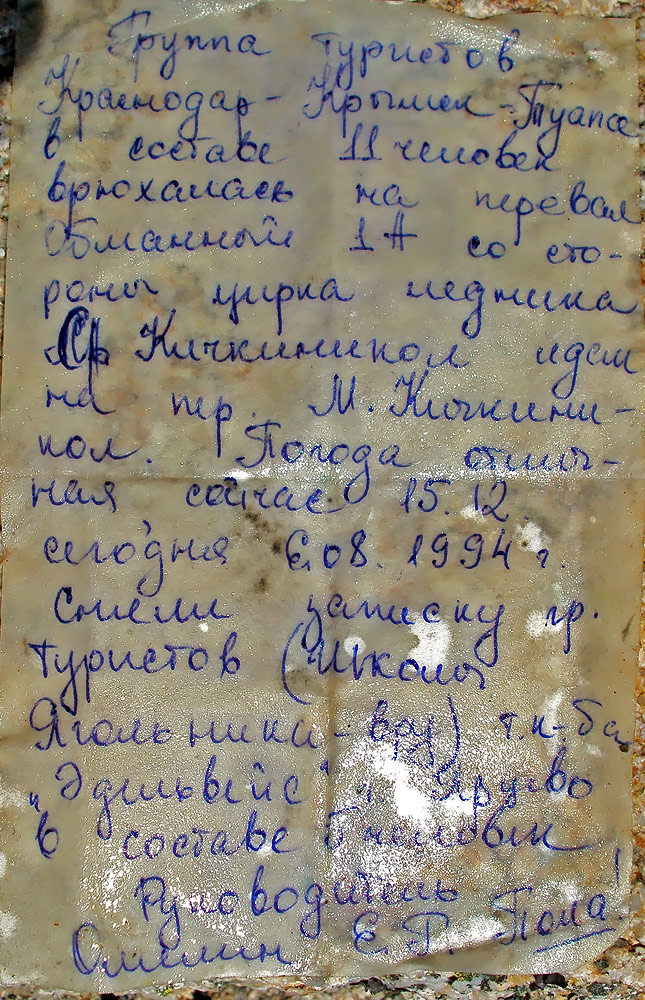 Группа туристов
Краснодар-Крымск-Туапсе
в составе 11 человек
врюхалась на перевал
Обманный 1А со сто-
роны цирка ледника
Ср Кичкинекол идем
на пер. М. Кичкине-
кол. Погода отлич-
ная сейчас 15.12
сегодня 6.08.1994 г.
Сняли записку гр.
туристов (Школы
Ягольника-вру) т.к-ба
"Эдильвейс" г
в составе человек
Руководитель
Е.Г. Пока!